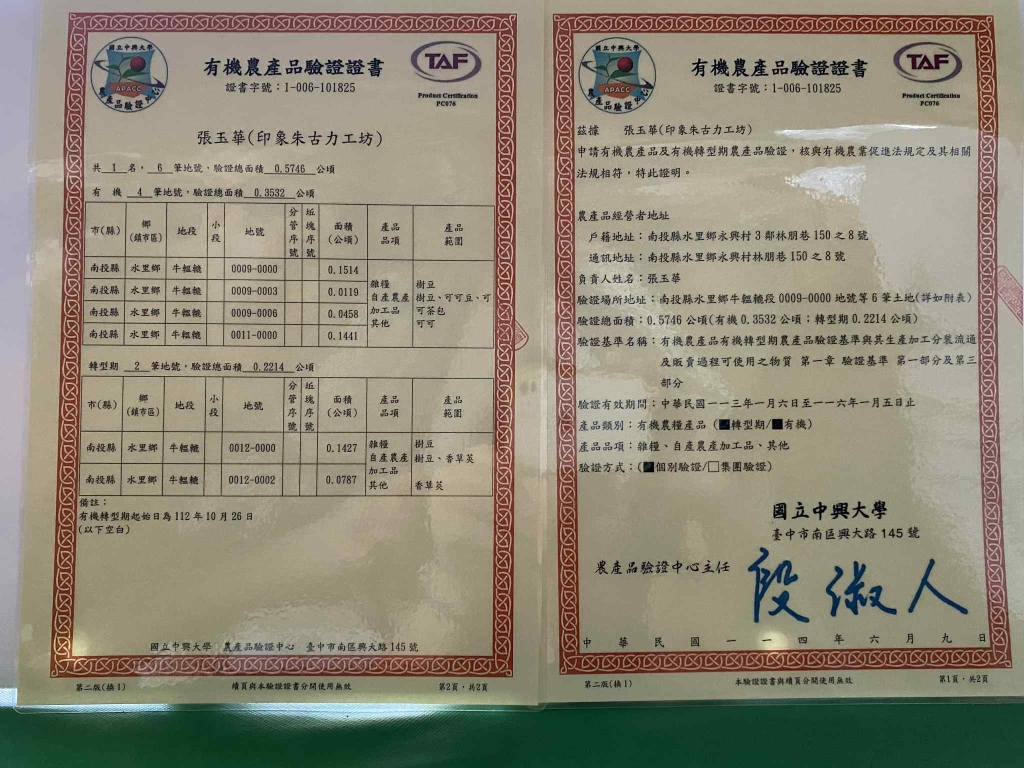 國立中興大學
APACC
農產品驗證中心
TAF
Product Certification
PC076
有機農產品驗證證書
證書字號：1-006-101825
張玉華(印象朱古力工坊)
共 1 名， 6 筆地號，驗證總面積 0.5746 公頃
有 機 4 筆地號，驗證總面積 0.3532 公頃
市(縣) 鄉(鎮市區) 地段 小段 地號 分管序號 坵塊序號 面積(公頃) 產品品項 產品範圍
南投縣 水里鄉 牛轀轆 0009-0000 0.1514
南投縣 水里鄉 牛轀轆 0009-0003 0.0119
南投縣 水里鄉 牛轀轆 0009-0006 0.0458
南投縣 水里鄉 牛轀轆 0011-0000 0.1441
雜糧 樹豆
自產農產 樹豆、可可豆、可
加工品 可茶包
其他 可可
轉型期 2 筆地號，驗證總面積 0.2214 公頃
市(縣) 鄉(鎮市區) 地段 小段 地號 分管序號 坵塊序號 面積(公頃) 產品品項 產品範圍
南投縣 水里鄉 牛轀轆 0012-0000 0.1427
南投縣 水里鄉 牛轀轆 0012-0002 0.0787
雜糧 樹豆
自產農產 樹豆、香草莢
加工品
其他 香草莢
備註：
有機轉型期起始日為 112 年 10 月 26 日
(以下空白)
國立中興大學 農產品驗證中心 臺中市南區興大路 145 號
第二版(換 1) 續頁與本驗證證書分開使用無效 第2頁，共2頁
國立中興大學
APACC
農產品驗證中心
TAF
Product Certification
PC076
有機農產品驗證證書
證書字號：1-006-101825
茲據 張玉華(印象朱古力工坊)
申請有機農產品及有機轉型期農產品驗證，核與有機農業促進法規定及其相關
法規相符，特此證明。
農產品經營者地址
戶籍地址：南投縣水里鄉永興村 3 鄰林朋巷 150 之 8 號
通訊地址：南投縣水里鄉永興村林朋巷 150 之 8 號
負責人姓名：張玉華
驗證場所地址：南投縣水里鄉牛轀轆段 0009-0000 地號等 6 筆土地(詳如附表)
驗證總面積：0.5746 公頃(有機 0.3532 公頃；轉型期 0.2214 公頃)
驗證基準名稱：有機農產品有機轉型期農產品驗證基準與其生產加工分裝流通
及販賣過程可使用之物質 第一章 驗證基準 第一部分及第三
部分
驗證有效期間：中華民國一一三年一月六日至一一六年一月五日止
產品類別：有機農糧產品（■轉型期/■有機）
產品品項：雜糧、自產農產加工品、其他
驗證方式：(■個別驗證/□集團驗證)
國立中興大學
臺中市南區興大路 145 號
農產品驗證中心主任 段淑人
中 華 民 國 一 一 四 年 六 月 九 日
第二版(換 1) 本驗證證書與續頁分開使用無效 第1頁，共2頁